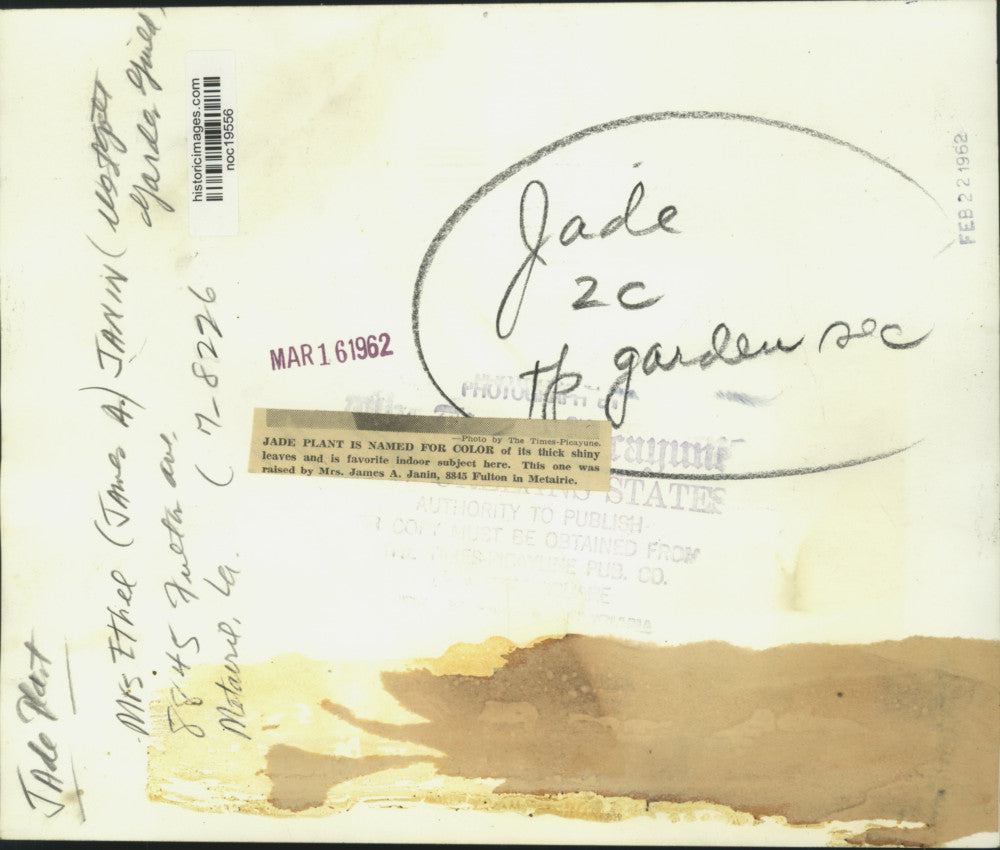 Jade
2c
tp garden sec
FEB 22 1962
MAR 16 1962
historicimages.com
noc19556
—Photo by The Times-Picayune.
JADE PLANT IS NAMED FOR COLOR of its thick shiny
leaves and is favorite indoor subject here. This one was
raised by Mrs. James A. Janin, 8845 Fulton in Metairie.
PHOTOGRAPH
STATES
AUTHORITY TO PUBLISH
COPY MUST BE OBTAINED FROM
THE TIMES-PICAYUNE PUB. CO.
SQUARE
JAde Plant
Mrs. Ethel (James A.) JANIN (
Garden Guild)
8845 Fulton ave.
Metairie, La. ( 7-8226